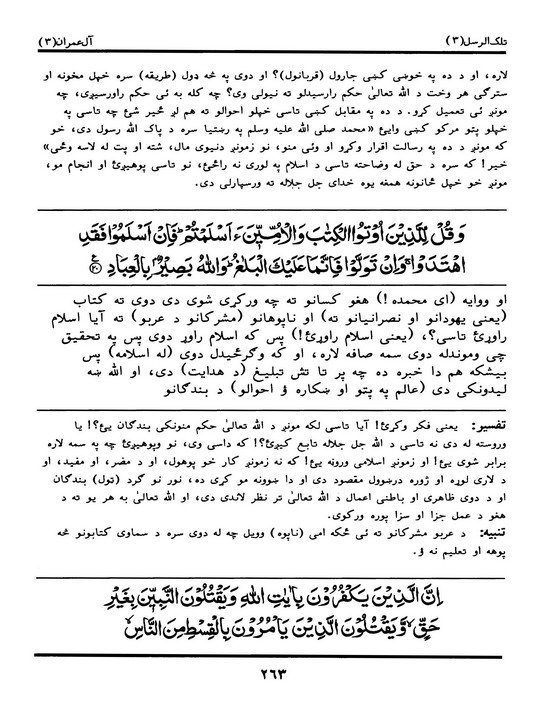 تلک الرسل (٣) آل عمران (٣)
لاره، او د ده په خوښي کښي جارول (قربانول)؟ او دوی په څه ډول (طریقه) سره خپل مخونه او
سترګي هر وخت د الله تعالیٰ حکم رارسیدلو ته نیولی وی؟ چه کله به ئی حکم راورسیږی، چه
مونږ ئی تعمیل کړو. د ده په مقابل کښي تاسی خپلو احوالو ته هم لږ ځیر شئ چه تاسی په
خپلو پتو مرکو کښي وایئ «محمد صلی الله علیه وسلم په رښتیا سره د پاک الله رسول دی، خو
که مونږ د ده په رسالت اقرار وکړو او وئی منو، نو زمونږ دنیوی مال، شته او پت له لاسه وځی»
خیر! که سره د حق له وضاحته تاسی د اسلام په لوری نه راځئ، نو تاسی پوهیږئ او انجام مو،
مونږ خو خپل ځانونه همغه یوه خدای جل جلاله ته ورسپارلی دی.
وَقُلْ لِّلَّذِيْنَ اُوْتُوا الْكِتٰبَ وَالْاُمِّيّٖنَ ءَاَسْلَمْتُمْ ؕ فَاِنْ اَسْلَمُوْا فَقَدِ
اهْتَدَوْا ۚ وَاِنْ تَوَلَّوْا فَاِنَّمَا عَلَيْكَ الْبَلٰغُ ؕ وَاللّٰهُ بَصِيْرٌۢ بِالْعِبَادِ ۝٢٠
او ووایه (ای محمده !) هغو کسانو ته چه ورکړی شوی دی دوی ته کتاب
(یعنی یهودانو او نصرانیانو ته) او ناپوهانو (مشرکانو د عربو) ته آیا اسلام
راوړئ تاسی؟، (یعنی اسلام راوړئ!) پس که اسلام راوړ دوی پس په تحقیق
چی وموندله دوی سمه صافه لاره، او که وګرځیدل دوی (له اسلامه) پس
بیشکه هم دا خبره ده چه پر تا تش تبلیغ (د هدایت) دی، او الله ښه
لیدونکی دی (عالم په پتو او ښکاره ؤ احوالو) د بندګانو
تفسیر: یعنی فکر وکړئ! آیا تاسی لکه مونږ د الله تعالیٰ حکم منونکی بندګان یئ؟! یا
وروسته له دی نه تاسی د الله جل جلاله تابع کیږئ؟! که داسی وی، نو وپوهیږئ چه په سمه لاره
برابر شوی یئ! او زمونږ اسلامی وروڼه یئ! که نه زمونږ کار خو پوهول، او د مضر، او مفید، او
د لاری لوړه او ژوره درښوول مقصود دی او دا ښوونه مو کړی ده، نور نو ګرد (تول) بندګان
او د دوی ظاهری او باطنی اعمال د الله تعالیٰ تر نظر لاندی دی، او الله تعالیٰ به هر یو ته د
هغو د عمل جزا او سزا پوره ورکوی.
تنبیه: د عربو مشرکانو ته ئی ځکه امی (ناپوه) وویل چه له دوی سره د سماوی کتابونو څه
پوهه او تعلیم نه ؤ.
اِنَّ الَّذِيْنَ يَكْفُرُوْنَ بِاٰيٰتِ اللّٰهِ وَيَقْتُلُوْنَ النَّبِيّٖنَ بِغَيْرِ
حَقٍّ ۙ وَّيَقْتُلُوْنَ الَّذِيْنَ يَاْمُرُوْنَ بِالْقِسْطِ مِنَ النَّاسِ ۙ
٢٦٣